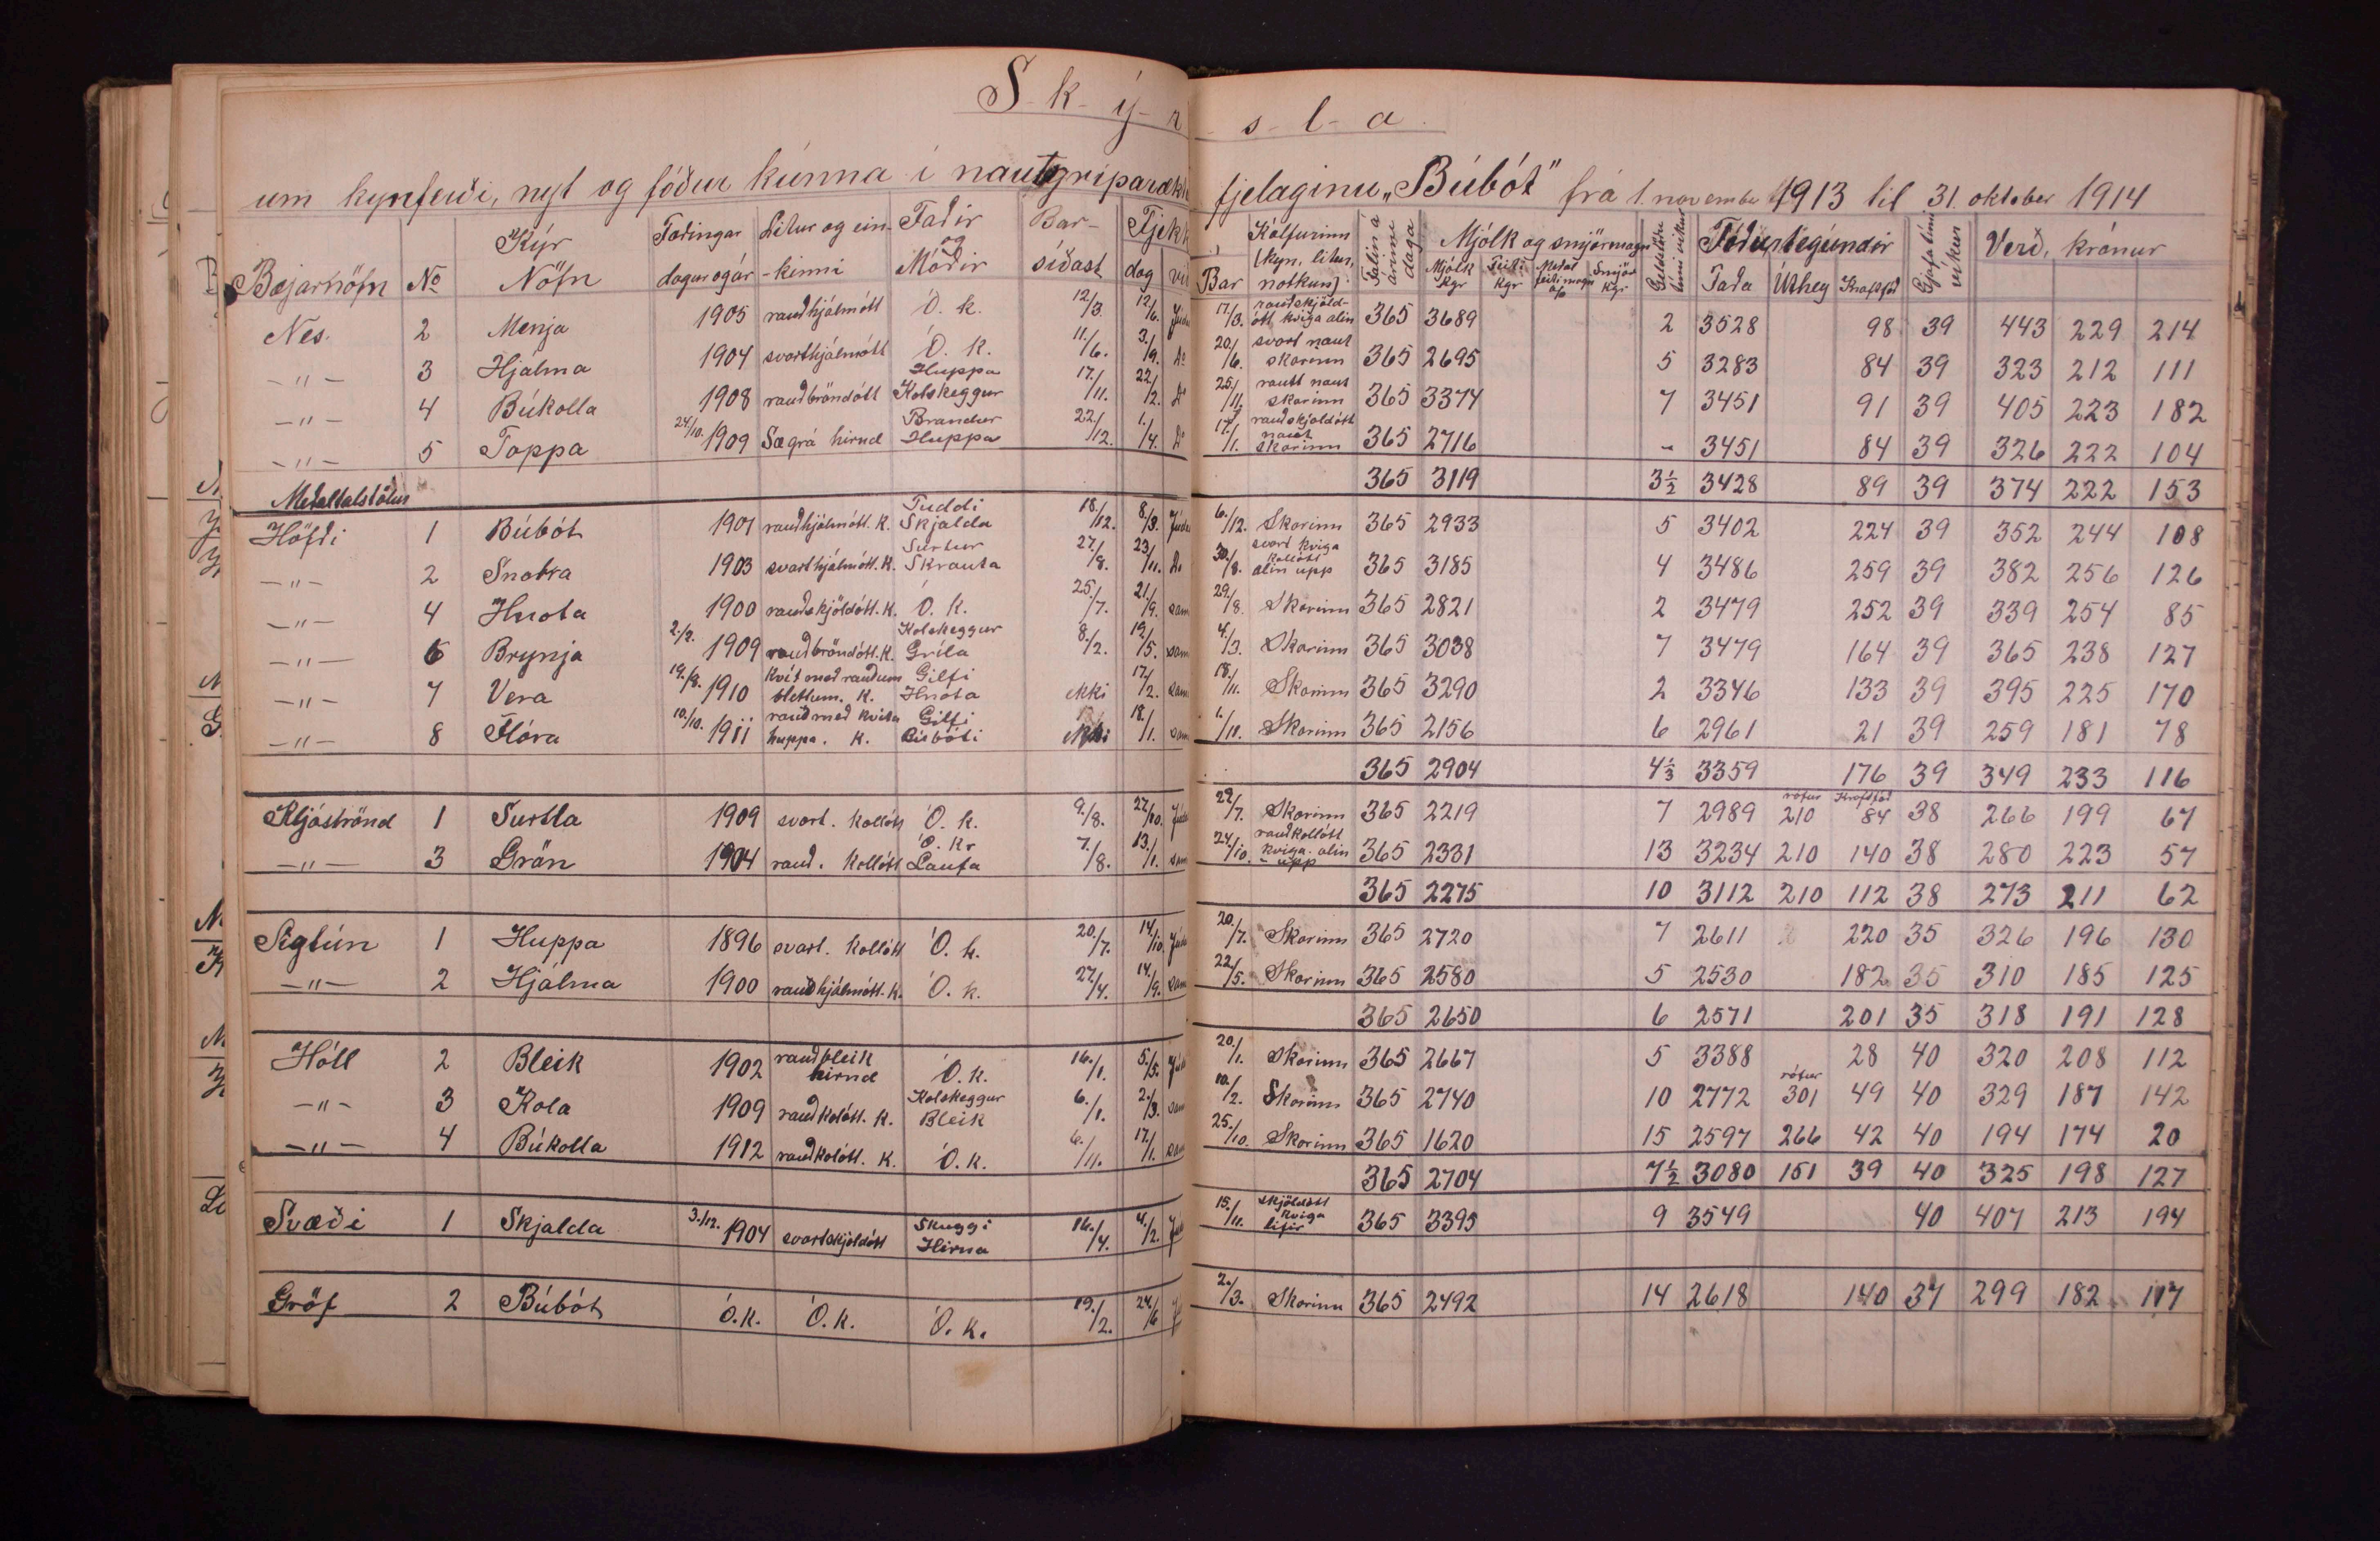 S-k-ý-r-s-l-a.
um kynferði, nyt og fóður kúnna í nautgriparækt fjelaginu „Búbót" frá 1. november 1913 til 31. oktober 1914
Bæjarnöfn Kýr № Nöfn Fæðingar dagur og ár Litur og ein-kinni Faðir og Móðir Bar-síðast Fjekk dag Bar Kálfurinn (kyn, litur, notkun) Talin á árinu daga Mjólk og smjörmagn Mjólk kgr Feiti kgr Meðal feitimagn % Smjör kgr Geldstöðu tími vikur Fóðurtegundir Taða Úthey Kraftfóð Gjafatími vikur Verð, krónur
Nes. 2 Menja 1905 rauðhjálmótt Ó. k. 12/3. 12/6. 17/3. rauðskjöld-ótt kvíga alin 365 3689 2 3528 98 39 443 229 214
-"- 3 Hjálma 1904 svarthjálmótt Ó. k. 11/6. 3/9. Do 20/6. svart naut skorinn 365 2695 5 3283 84 39 323 212 111
-"- 4 Búkolla 1908 rauðbröndótt Huppa Kolskeggur 17/11. 22/2. Do 25/11. rautt naut skorinn 365 3374 7 3451 91 39 405 223 182
-"- 5 Toppa 24/10. 1909 Sægrá hirnd Brandur Huppa 22/12. 1/4. Do 17/1. rauðskjöldótt naut skorinn 365 2716 - 3451 84 39 326 222 104
Meðaltalstölur 365 3119 3½ 3428 89 39 374 222 153
Höfði 1 Búbót 1901 rauðhjálmótt. K. Tuddi Skjalda 18/12. 8/3. 6/12. Skorinn 365 2933 5 3402 224 39 352 244 108
-"- 2 Snotra 1903 svarthjálmótt. K. Surtur Skrauta 27/8. 23/11. Do 30/8. svort kvíga kollótt alin upp 365 3185 4 3486 259 39 382 256 126
-"- 4 Hnota 1900 rauðskjöldótt. K. Ó. K. 25/7. 21/9. sam 29/8. Skorinn 365 2821 2 3479 252 39 339 254 85
-"- 6 Brynja 2/2. 1909 rauðbröndótt. K. Kolskeggur Gríla 8/2. 19/5. sam 4/3. Skorinn 365 3038 7 3479 164 39 365 238 127
-"- 7 Vera 19/8. 1910 Kvít með rauðum blettum. K. Gilfi Hnota ekki 17/2. sam 18/11. Skorinn 365 3290 2 3346 133 39 395 225 170
-"- 8 Flóra 10/10. 1911 rauð með kvíta huppa. K. Gilfi Búbóti ekki 18/1. sam 1/11. Skorinn 365 2156 6 2961 21 39 259 181 78
365 2904 4⅓ 3359 176 39 349 233 116
Kljáströnd 1 Surtla 1909 svart. kollótt Ó. k. 9/8. 27/10. 29/7. Skorinn 365 2219 7 2989 rófur 210 Kraftfóð 84 38 266 199 67
-"- 3 Grön 1904 rauð. kollótt Ó. Kr Laufa 7/8. 13/1. sam 24/10. rauðkollótt kvíga. alin - upp 365 2331 13 3234 210 140 38 280 223 57
365 2275 10 3112 210 112 38 273 211 62
Sigtún 1 Huppa 1896 svart. kollótt Ó. k. 20/7. 14/10. 20/7. Skorinn 365 2720 7 2611 220 35 326 196 130
-"- 2 Hjálma 1900 rauðhjálmótt. K. Ó. k. 27/4. 14/9. sam 22/5. Skorinn 365 2580 5 2530 182 35 310 185 125
365 2650 6 2571 201 35 318 191 128
Hóll 2 Bleik 1902 rauðbleik hirnd Ó. K. 16/1. 5/5. 20/1. Skorinn 365 2667 5 3388 28 40 320 208 112
-"- 3 Kola 1909 rauðkolótt. K. Kolskeggur Bleik 6/1. 2/3. sam 10/2. Skorinn 365 2740 10 2772 rófur 301 49 40 329 187 142
-"- 4 Búkolla 1912 rauðkolótt. K. Ó. K. 6/11. 17/1. sam 25/10. Skorinn 365 1620 15 2597 266 42 40 194 174 20
365 2704 7½ 3080 151 39 40 325 198 127
Svæði 1 Skjalda 3/12. 1904 svartskjöldótt Skuggi Hirna 16/4. 4/2. 15/11. skjöldótt kvíga lifir 365 3395 9 3549 40 407 213 194
Gröf 2 Búbót Ó.K. Ó.K. Ó.K. 19/2. 24/6 2/3. Skorinn 365 2492 14 2618 140 37 299 182 117